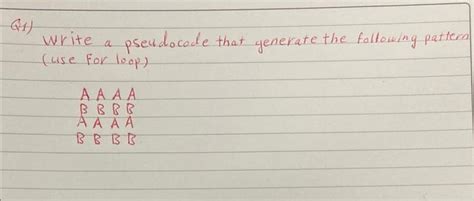 Q1)
Write a pseudocode that generate the following pattern
(use For loop)
A A A A
B B B B
A A A A
B B B B